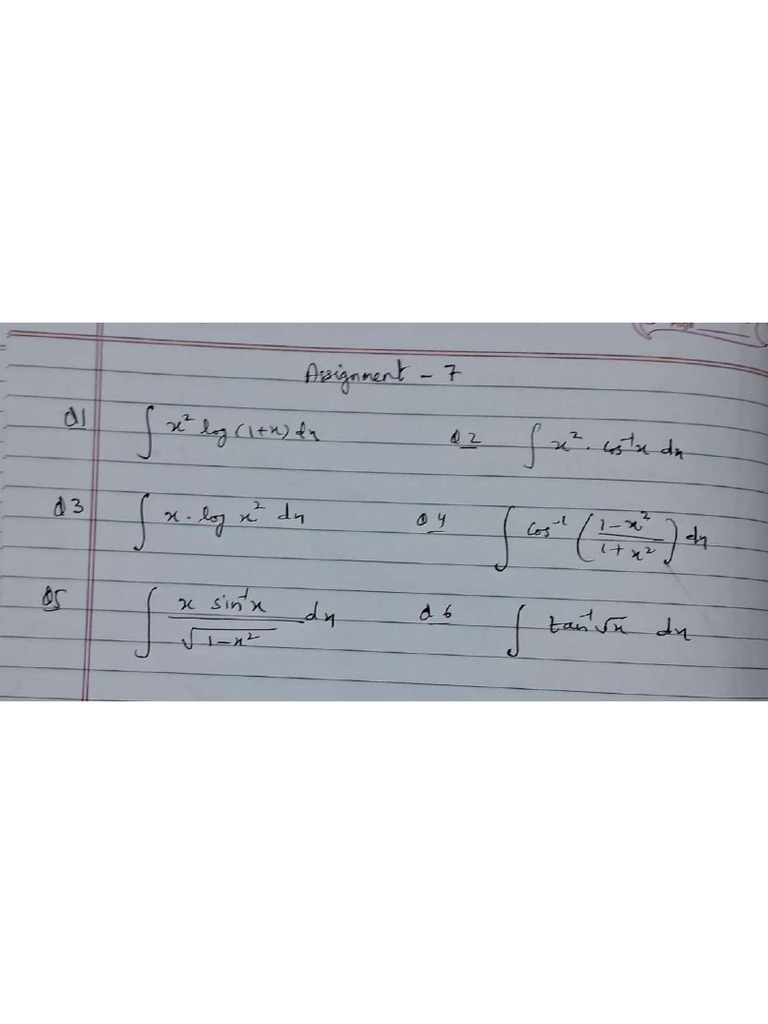 Assignment - 7
Q1 ∫ x² log (1+x) dx Q2 ∫ x² · cos⁻¹x dx
Q3 ∫ x · log x² dx Q4 ∫ cos⁻¹ ((1-x²)/(1+x²)) dx
Q5 ∫ (x sin⁻¹x)/(√(1-x²)) dx Q6 ∫ tan⁻¹√x dx